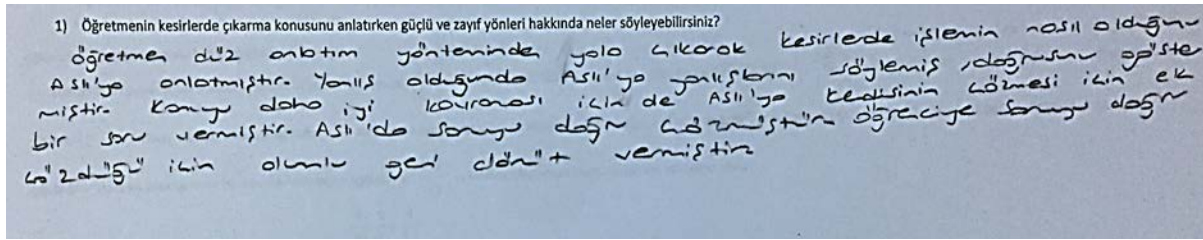 1) Öğretmenin kesirlerde çıkarma konusunu anlatırken güçlü ve zayıf yönleri hakkında neler söyleyebilirsiniz?
öğretmen düz anlatım yönteminden yola çıkarak kesirlerde işlemin nasıl olduğunu
Aslı'ya anlatmıştır. Yanlış olduğunda Aslı'ya yanlışlarını söylemiş, doğrusunu göster
miştir. Konuyu daha iyi kavraması için de Aslı'ya kedisinin çözmesi için ek
bir soru vermiştir. Aslı'da soruyu doğru çözmüştür öğrenciye soruyu doğru
çözdüğü için olumlu geri dönüt vermiştir